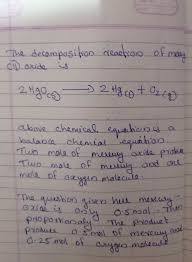 The decomposition reaction of mercury
(II) oxide is
2 HgO(s) → 2 Hg(l) + O2(g)
above chemical equation is a
balance chemical equation.
Two mole of mercury oxide produce
Two mole of mercury and one
mole of oxygen molecule.
The question given here mercury
oxide is only 0.5 mol. Then
proportionally The product
produce 0.5 mol of mercury and
0.25 mol of oxygen molecule